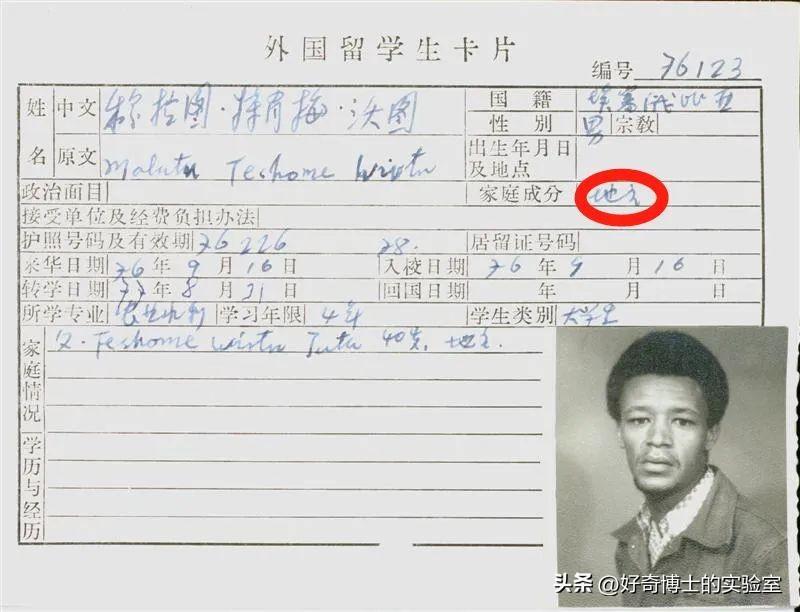 外国留学生卡片
编号 76123
姓名 中文 穆拉图·特肖梅·沃图 国籍 埃塞俄比亚
性别 男 宗教
原文 Malutu Teshome Wirtu 出生年月日及地点
政治面目 家庭成分 地主
接受单位及经费负担办法
护照号码及有效期 76226 78. 居留证号码
来华日期 76年9月16日 入校日期 76年9月16日
转学日期 77年8月31日 回国日期 年 月 日
所学专业 学习年限 4年 学生类别 大学生
家庭情况 父·Teshome Wirtu Tutu 40岁, 地主.
学历与经历
头条 @好奇博士的实验室